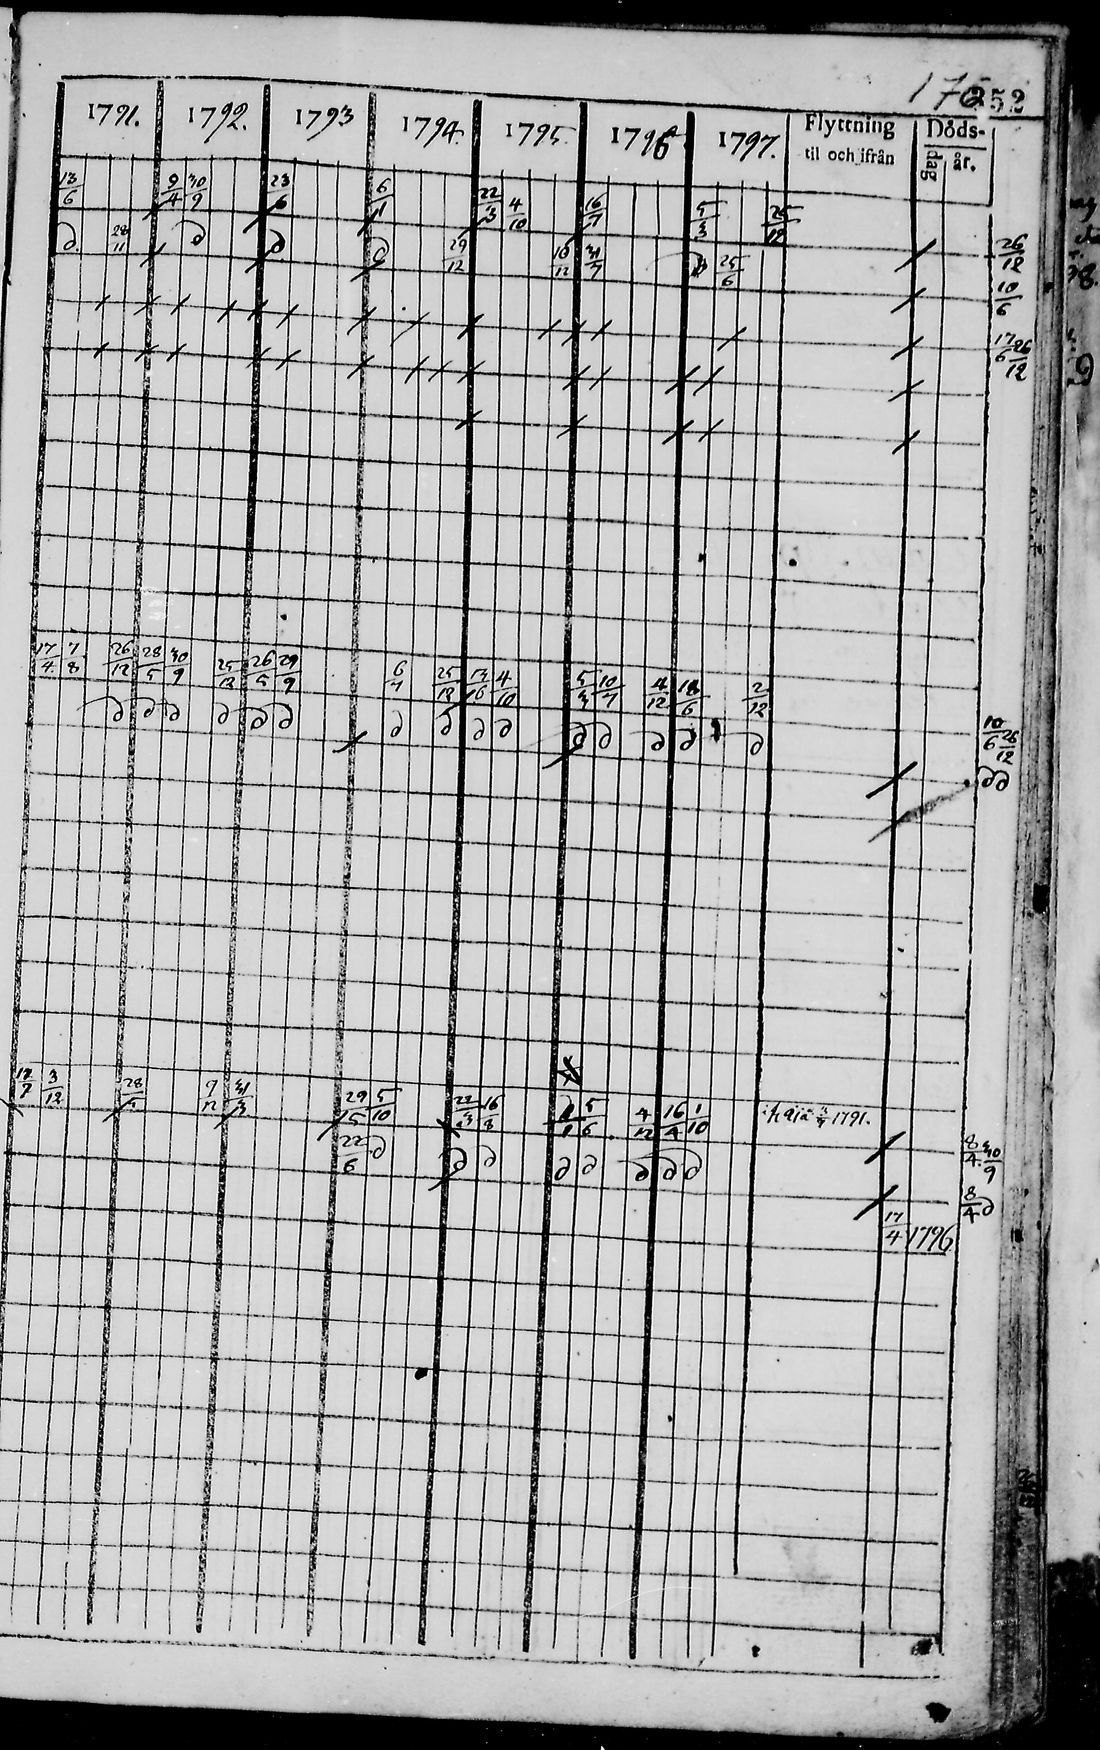 252
1791. 1792. 1793 1794. 1795. 1796 1797. Flyttning til och ifrån Döds- dag år.
13/6 9/4 30/9 23/6 6/11 22/3 4/10 16/7 5/3 26/12
∂ 28/11 ∂ ∂ ∂ 29/12 10/12 31/7 25/6 26/12
10/6
17/6 26/12
17/4 7/8 26/12 28/5 30/9 25/12 26/5 29/9 6/7 25/12 4/10 5/3 10/7 4/12 18/6 2/12
∂ ∂ ∂ ∂ ∂ ∂ ∂ ∂ ∂ ∂ ∂ ∂ ∂ ∂ ∂ 10/6 26/12
∂ ∂
17/7 3/12 28/5 9/12 31/3 29/5 5/10 22/3 16/8 5/6 4/12 16/4 1/10 1791.
22/6 ∂ ∂ ∂ ∂ ∂ ∂ ∂ ∂ 8/4 30/9
8/4 ∂
17/4 1796